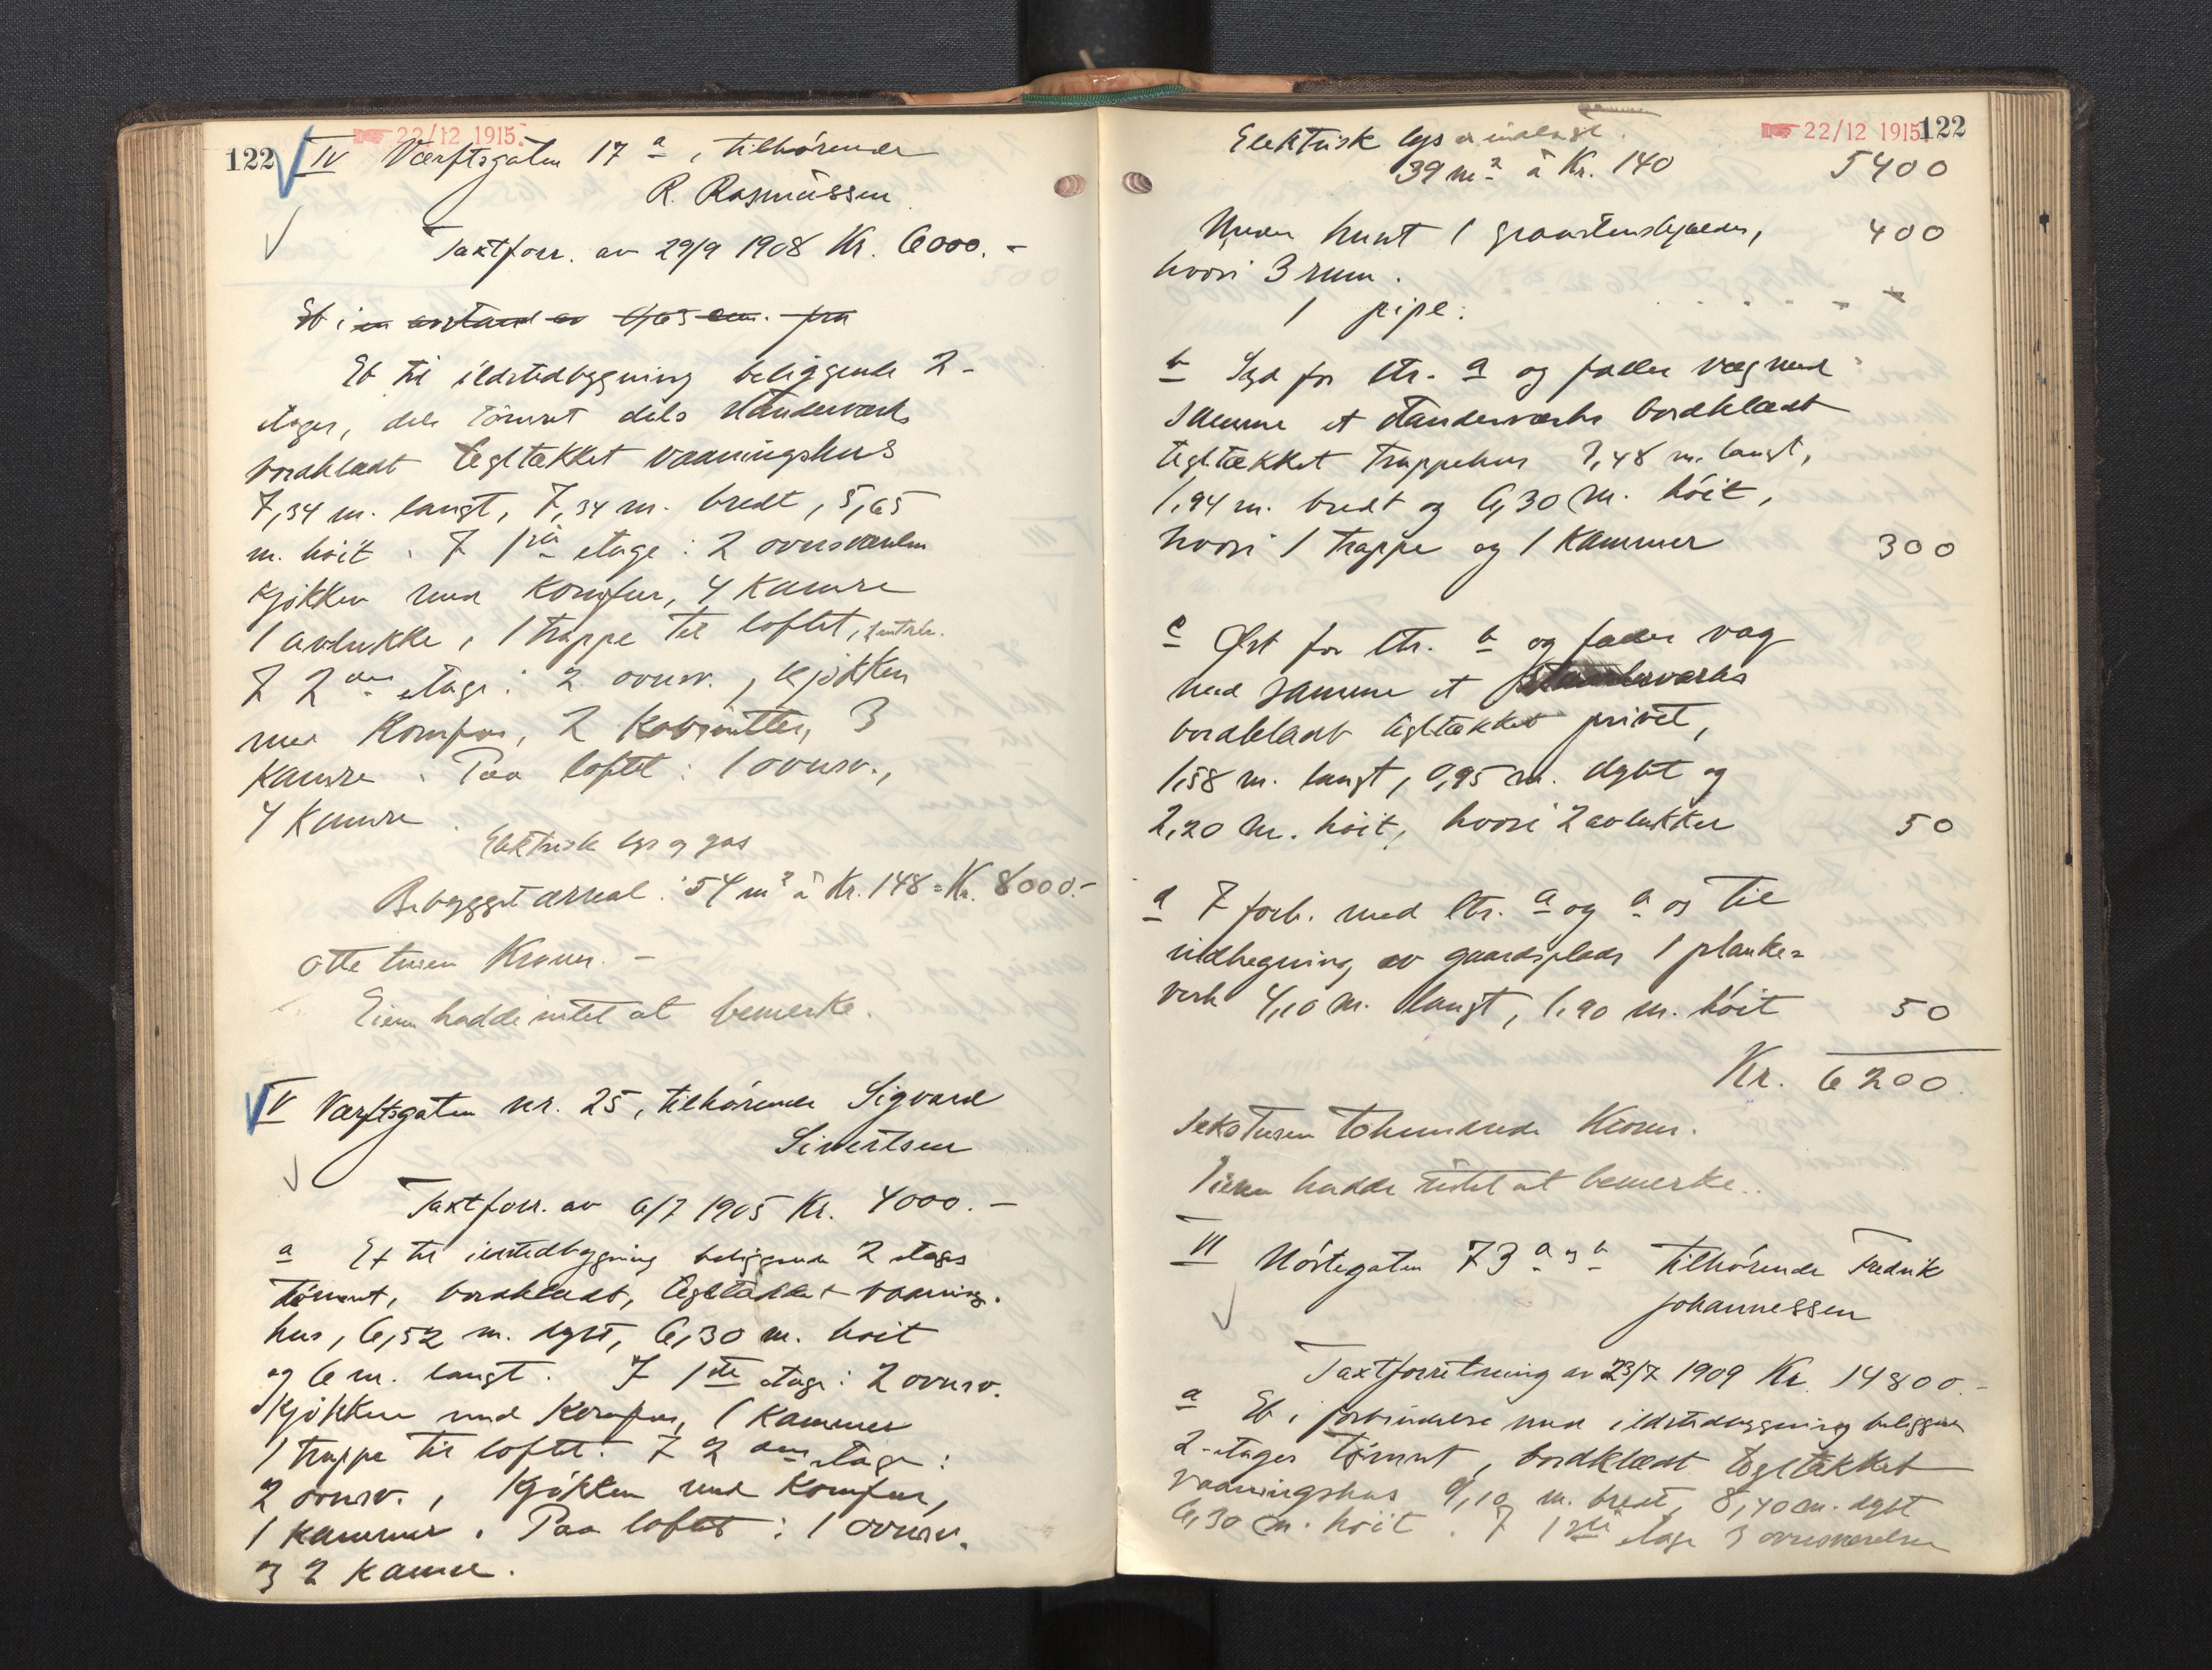 22/12 1915.
122 IV Værftsgaten 17 a, tilhørende
R. Rasmussen
Taxtforr. av 29/9 1908 Kr. 6000.-
Et i en avstand av 6,65 cm. fra
Et til ildstedbygning beliggende 2-
etages, dels tømret dels standerverks
bordklædt tegltækket vaaningshus
7,34 m. langt, 7,34 m. bredt, 5,65
m. høit. I 1ste etage: 2 ovnsværelser
kjøkken med komfur, 4 kamre
1 avlukke, 1 trappe til loftet, 1 entrée.
I 2den etage: 2 ovnsv., kjøkken
med komfur, 2 kabinetter, 3
kamre. Paa loftet: 1 ovnsv.,
4 kamre.
Elektrisk lys og gas
Bebygget areal: 54 m² à Kr. 148 = Kr. 8000.-
otte tusen Kroner. -
Eieren hadde intet at bemerke.
V Værftsgaten nr. 25, tilhørende Sigvard
Sivertsen
Taxtforr. av 6/7 1905 Kr. 4000.-
a Et til ildstedbygning beliggende 2 etages
tømret, bordklædt, tegltækket vaanings-
hus, 6,52 m. dypt, 6,30 m. høit
og 6 m. langt. I 1ste etage: 2 ovnsv.
kjøkken med komfur, 1 kammer
1 trappe til loftet. I 2den etage:
2 ovnsv., kjøkken med komfur,
1 kammer. Paa loftet: 1 ovnsv.
og 2 kamre.
22/12 1915 122
Elektrisk lys er indlagt.
39 m² à Kr. 140 5400
Under huset 1 graastenskjælder, 400
hvori 3 rum.
1 pipe.
b Syd for ltr. a og fælles væg med
samme et standerværks bordklædt
tegltækket trappehus 2,48 m. langt,
1,94 m. bredt og 6,30 m. høit,
hvori 1 trappe og 1 kammer 300
c Øst for ltr. b og fælles væg
med samme et standerværks
bordklædt tegltækket privet,
1,58 m. langt, 0,95 m. dypt og
2,20 m. høit, hvori 2 avlukker 50
d I forb. med ltr. a og a og til
indhegning av gaardsplads 1 planke=
verk 4,10 m. langt, 1,90 m. høit 50
Kr. 6200.
sekstusen tohundrede Kroner.
Eieren hadde intet at bemerke.
VI Nøstegaten 73 a og b tilhørende Fredrik
Johannessen
Taxtforretning av 23/7 1909 Kr. 14800.-
a Et i forbindelse med ildstedbygning beliggende
2-etages tømret, bordklædt tegltækket
vaaningshus 9,10 m. bredt, 8,40 m. dypt
6,30 m. høit. I 1ste etage 3 ovnsværelser